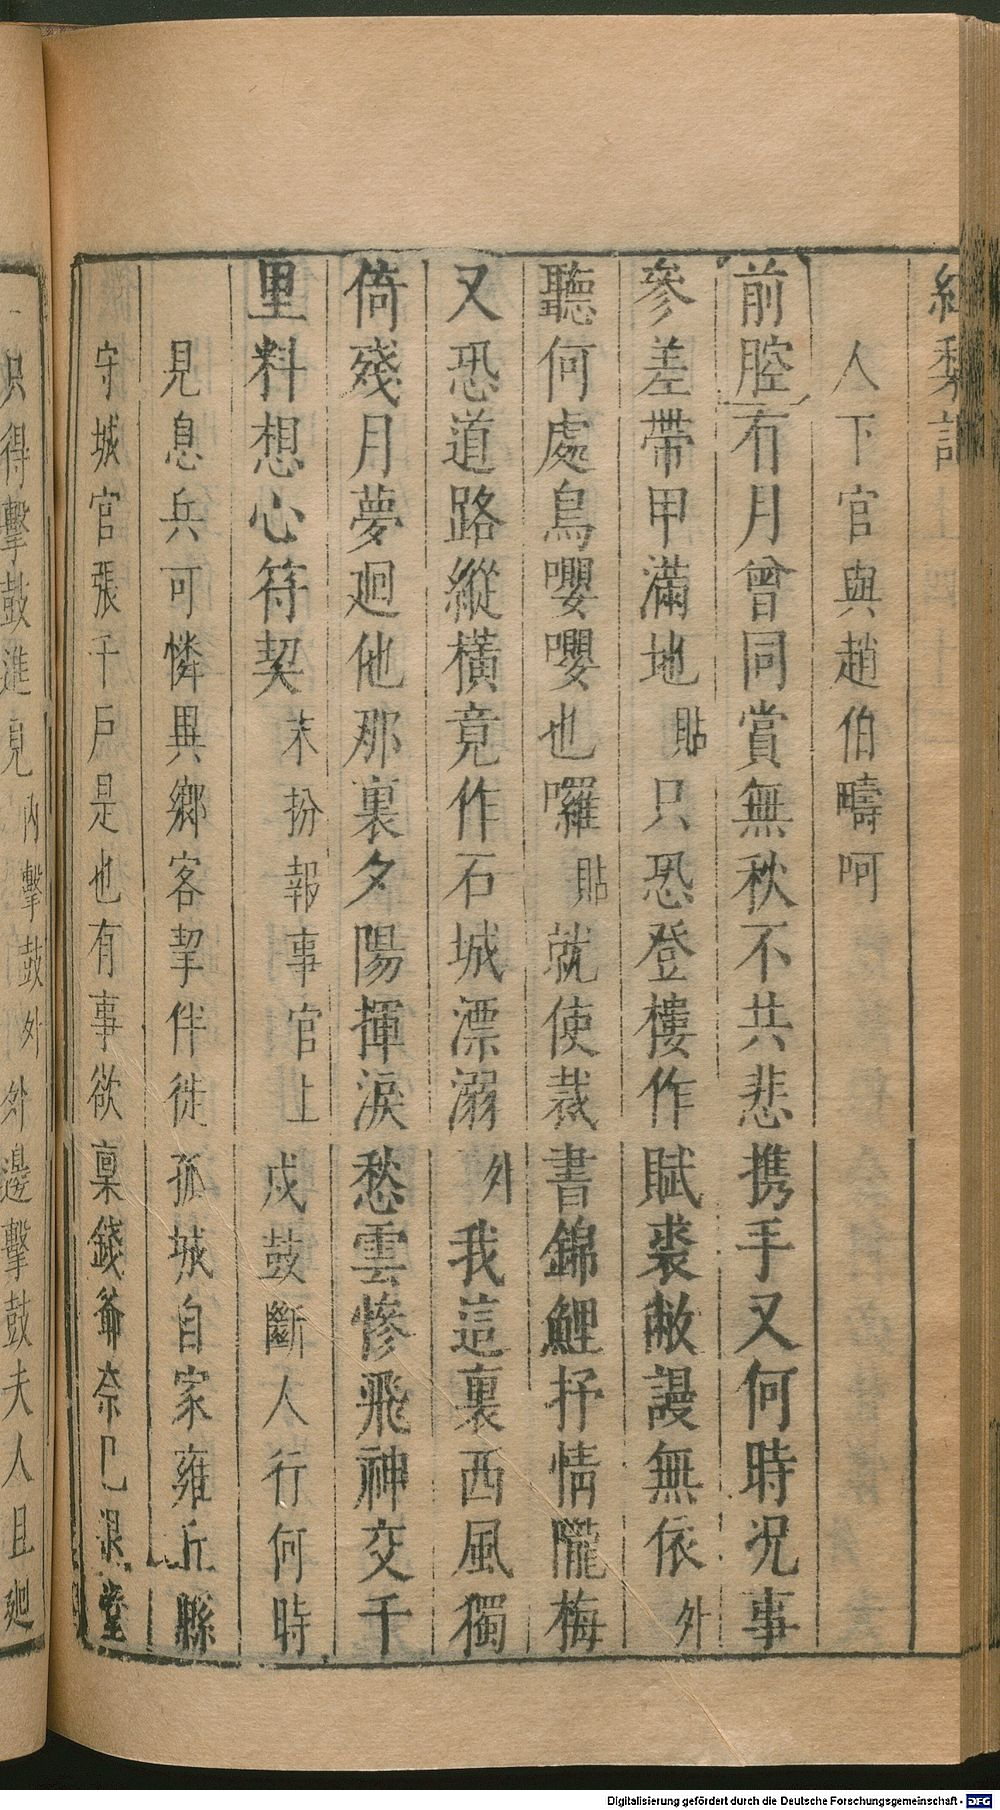 人下官與趙伯疇呵
前腔有月曾同賞無秋不共悲携手又何時況事
參差帶甲滿地貼只恐登樓作賦裘敝謾無依外
聽何處鳥嚶嚶也囉貼就使裁書錦鯉抒情隴梅
又恐道路縱橫竟作石城漂溺外我這裏西風獨
倚殘月夢廻他那裏夕陽揮淚愁雲慘飛神交千
里料想心符契末扮報事官上戍鼓斷人行何時
見息兵可憐異鄉客挈伴徒孤城自家雍丘縣
守城官張千戶是也有事欲稟錢爺奈已退堂
只得擊鼓進見內擊鼓外外邊擊鼓夫人且廻
Digitalisierung gefördert durch die Deutsche Forschungsgemeinschaft - DFG